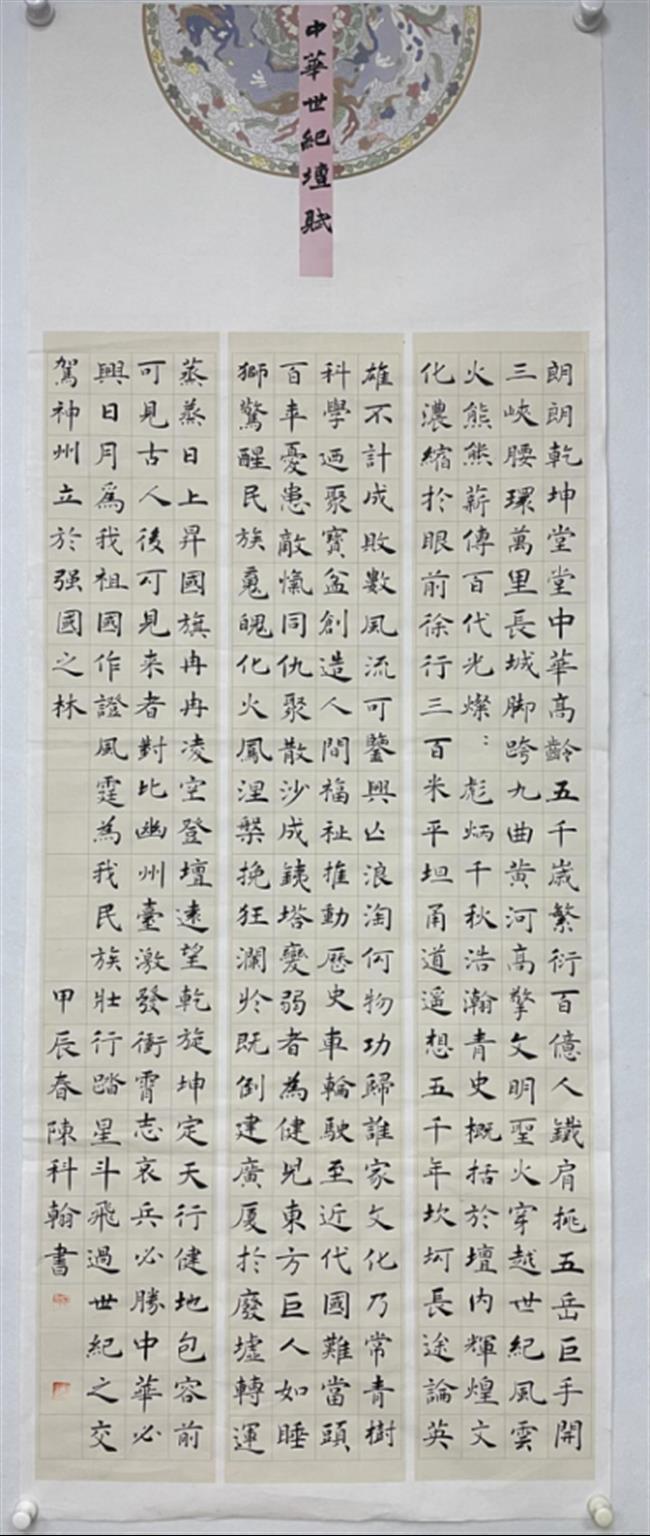 中華世紀壇賦
朗朗乾坤堂堂中華高齡五千歲繁衍百億人鐵肩挑五岳巨手開
三峽腰環萬里長城脚跨九曲黄河高擎文明聖火穿越世紀風雲
火熊熊薪傳百代光燦：彪炳千秋浩瀚青史概括於壇内輝煌文
化濃縮於眼前徐行三百米平坦甬道遥想五千年坎坷長途論英
雄不計成敗數風流可鑒興亡浪淘何物功歸誰家文化乃常青樹
科學迺聚寳盆創造人間福祉推動歷史車輪駛至近代國難當頭
百年憂患敵愾同仇聚散沙成銕塔變弱者為健兒東方巨人如睡
獅驚醒民族魂魄化火鳳涅槃挽狂瀾於既倒建廣厦於廢墟轉運
蒸蒸日上昇國旗冉冉凌空登壇遠望乾旋坤定天行健地包容前
可見古人後可見来者對比幽州臺激發衝霄志哀兵必勝中華必
興日月爲我祖國作證風霆為我民族壯行踏星斗飛過世紀之交
駕神州立於强國之林
甲辰春陳科翰書